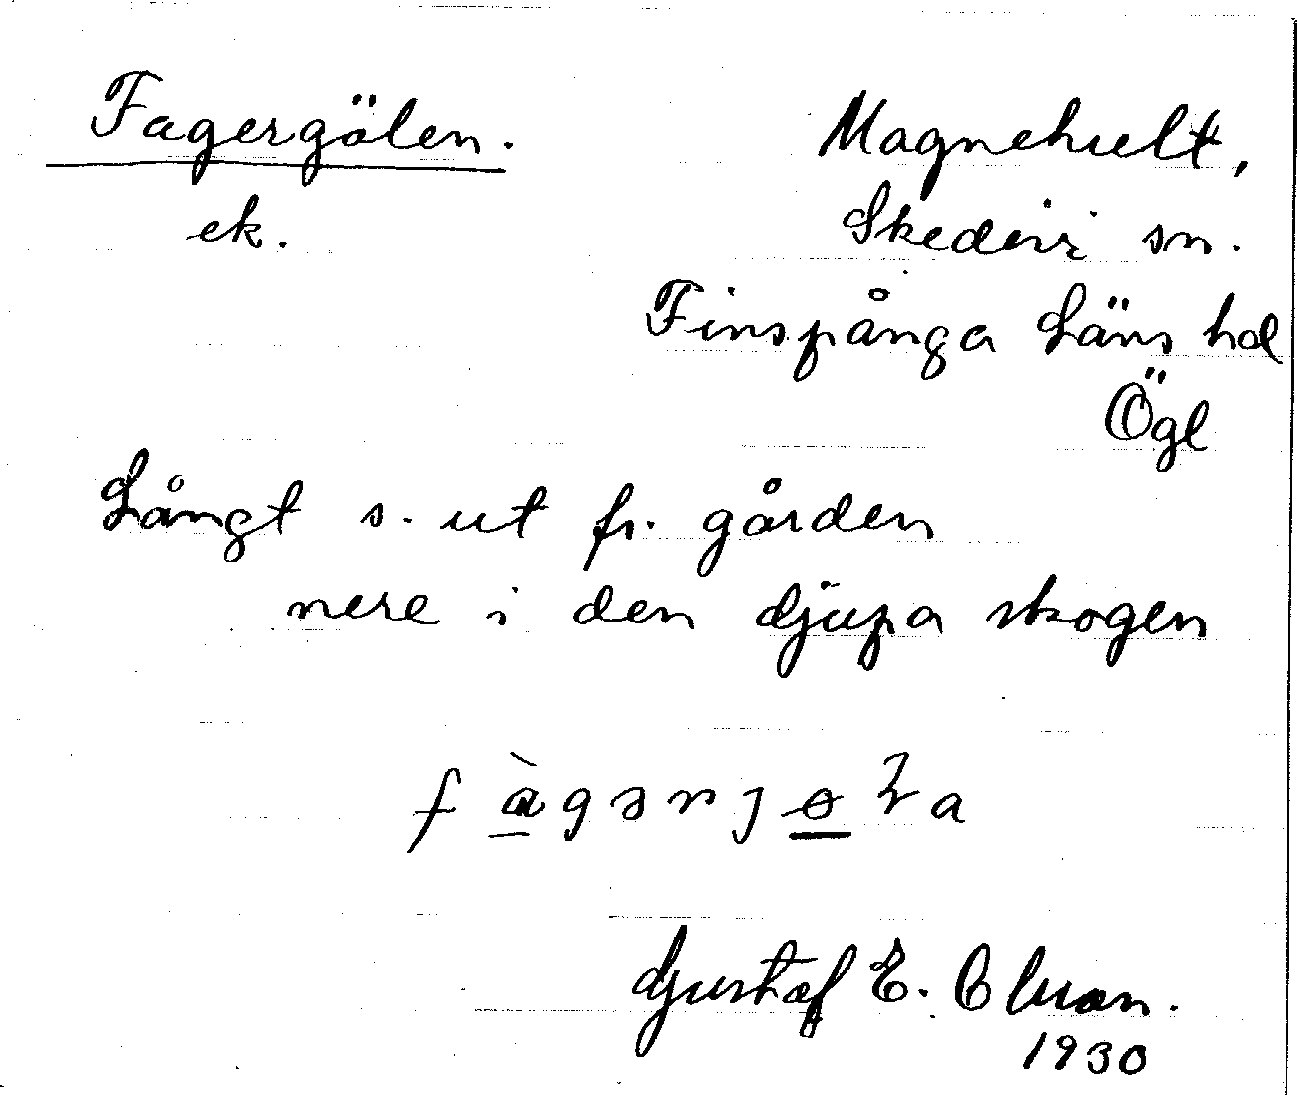 Fagergölen.
ek.
Magnehult,
Skedevi sn.
Finspånga Läns hd
Ögl
Långt s. ut fr. gården
nere i den djupa skogen
Gustaf E.
1930